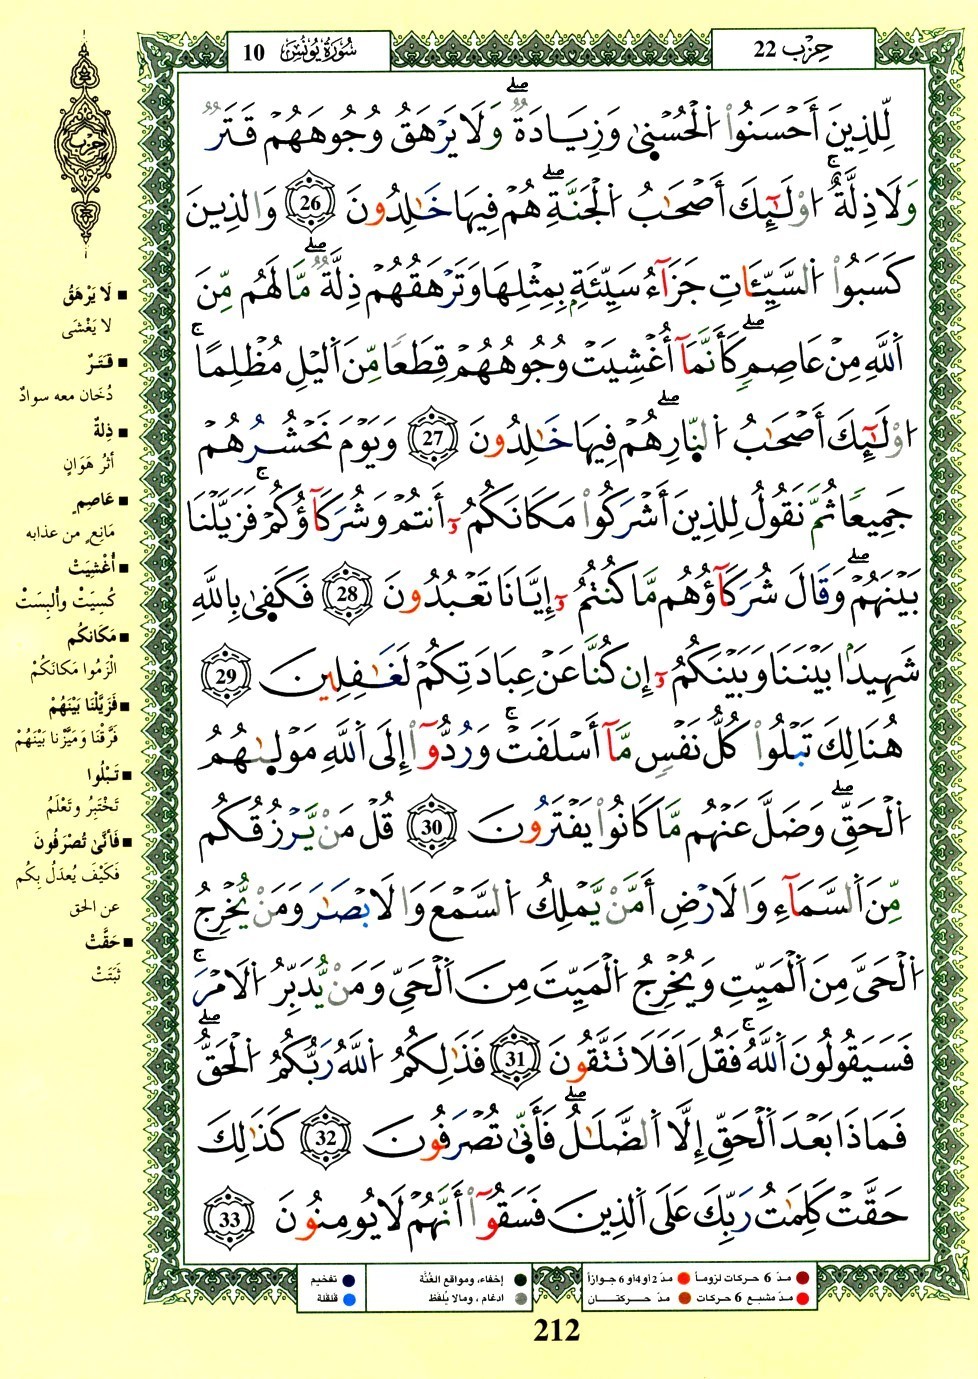 حِزْب 22
سُورَةُ يُونُسَ 10
لِّلذِينَ أَحْسَنُواْ الْحُسْنىٰ وَزِيَادَةٌ وَلَا يَرْهَقُ وُجُوهَهُمْ قَتَرٌ
وَلَا ذِلَّةٌ اوْلَٰٓئِكَ أَصْحَٰبُ الْجَنَّةِ هُمْ فِيهَا خَٰلِدُونَ 26 وَالذِينَ
كَسَبُواْ السَّيِّـَٔاتِ جَزَآءُ سَيِّئَةٍ بِمِثْلِهَا وَتَرْهَقُهُمْ ذِلَّةٌ مَّا لَهُم مِّنَ
اَللَّهِ مِنْ عَاصِمٍ كَأَنَّمَآ أُغْشِيَتْ وُجُوهُهُمْ قِطَعًا مِّنَ اَليْلِ مُظْلِمًا
اوْلَٰٓئِكَ أَصْحَٰبُ النّارِ هُمْ فِيهَا خَٰلِدُونَ 27 وَيَوْمَ نَحْشُرُهُمْ
جَمِيعًا ثُمَّ نَقُولُ لِلذِينَ أَشْرَكُواْ مَكَانَكُمُۥٓ أَنتُمْ وَشُرَكَآؤُكُمْ فَزَيَّلْنَا
بَيْنَهُمْ وَقَالَ شُرَكَآؤُهُم مَّا كُنتُمُۥٓ إِيَّانَا تَعْبُدُونَ 28 فَكَفىٰ بِاللَّهِ
شَهِيدًا بَيْنَنَا وَبَيْنَكُمُۥٓ إِن كُنَّا عَنْ عِبَادَتِكُمْ لَغَٰفِلِينَ 29
هُنَالِكَ تَبْلُواْ كُلُّ نَفْسٍ مَّآ أَسْلَفَتْ وَرُدُّوٓاْ إِلَى اَللَّهِ مَوْلىٰهُمُ
الْحَقِّ وَضَلَّ عَنْهُم مَّا كَانُواْ يَفْتَرُونَ 30 قُلْ مَنْ يَّرْزُقُكُم
مِّنَ اَلسَّمَآءِ وَالَارْضِ أَمَّنْ يَّمْلِكُ السَّمْعَ وَالَابْصَٰرَ وَمَنْ يُّخْرِجُ
الْحَىَّ مِنَ اَلْمَيِّتِ وَيُخْرِجُ الْمَيِّتَ مِنَ اَلْحَىِّ وَمَنْ يُّدَبِّرُ الَامْرَ
فَسَيَقُولُونَ اَللَّهُ فَقُلَ اَفَلَا تَتَّقُونَ 31 فَذَٰلِكُمُ اللَّهُ رَبُّكُمُ الْحَقُّ
فَمَاذَا بَعْدَ اَلْحَقِّ إِلَّا اَلضَّلَٰلُ فَأَنّىٰ تُصْرَفُونَ 32 كَذَٰلِكَ
حَقَّتْ كَلِمَٰتُ رَبِّكَ عَلَى اَلذِينَ فَسَقُوٓاْ أَنَّهُمْ لَا يُومِنُونَ 33
حزب
■ لَا يَرْهَقُ
لا يَغْشَى
■ قَتَرٌ
دُخَان معه سوادٌ
■ ذِلَّةٌ
أثَرُ هَوَانٍ
■ عَاصِمٍ
مَانِعٍ من عذابه
■ أُغْشِيَتْ
كُسِيَتْ وأُلبِسَتْ
■ مَكَانَكُم
الْزَمُوا مَكانَكُمْ
■ فَزَيَّلْنَا بَيْنَهُمْ
فَرَّقْنَا وَمَيَّزْنا بَيْنَهُمْ
■ تَبْلُوا
تَخْتَبِرُ وتَعْلَمُ
■ فَأَنَّىٰ تُصْرَفُونَ
فَكَيْفَ يُعدَلُ بِكُم
عن الحق
■ حَقَّتْ
ثَبَتَتْ
مدّ 6 حركات لزوماً مدّ 2 أو 4 أو 6 جوازاً إخفاء، ومواقع الغُنَّة تفخيم
مدّ مشبع 6 حركات مدّ حركتان ادغام، ومالا يُلفظ قلقلة
212